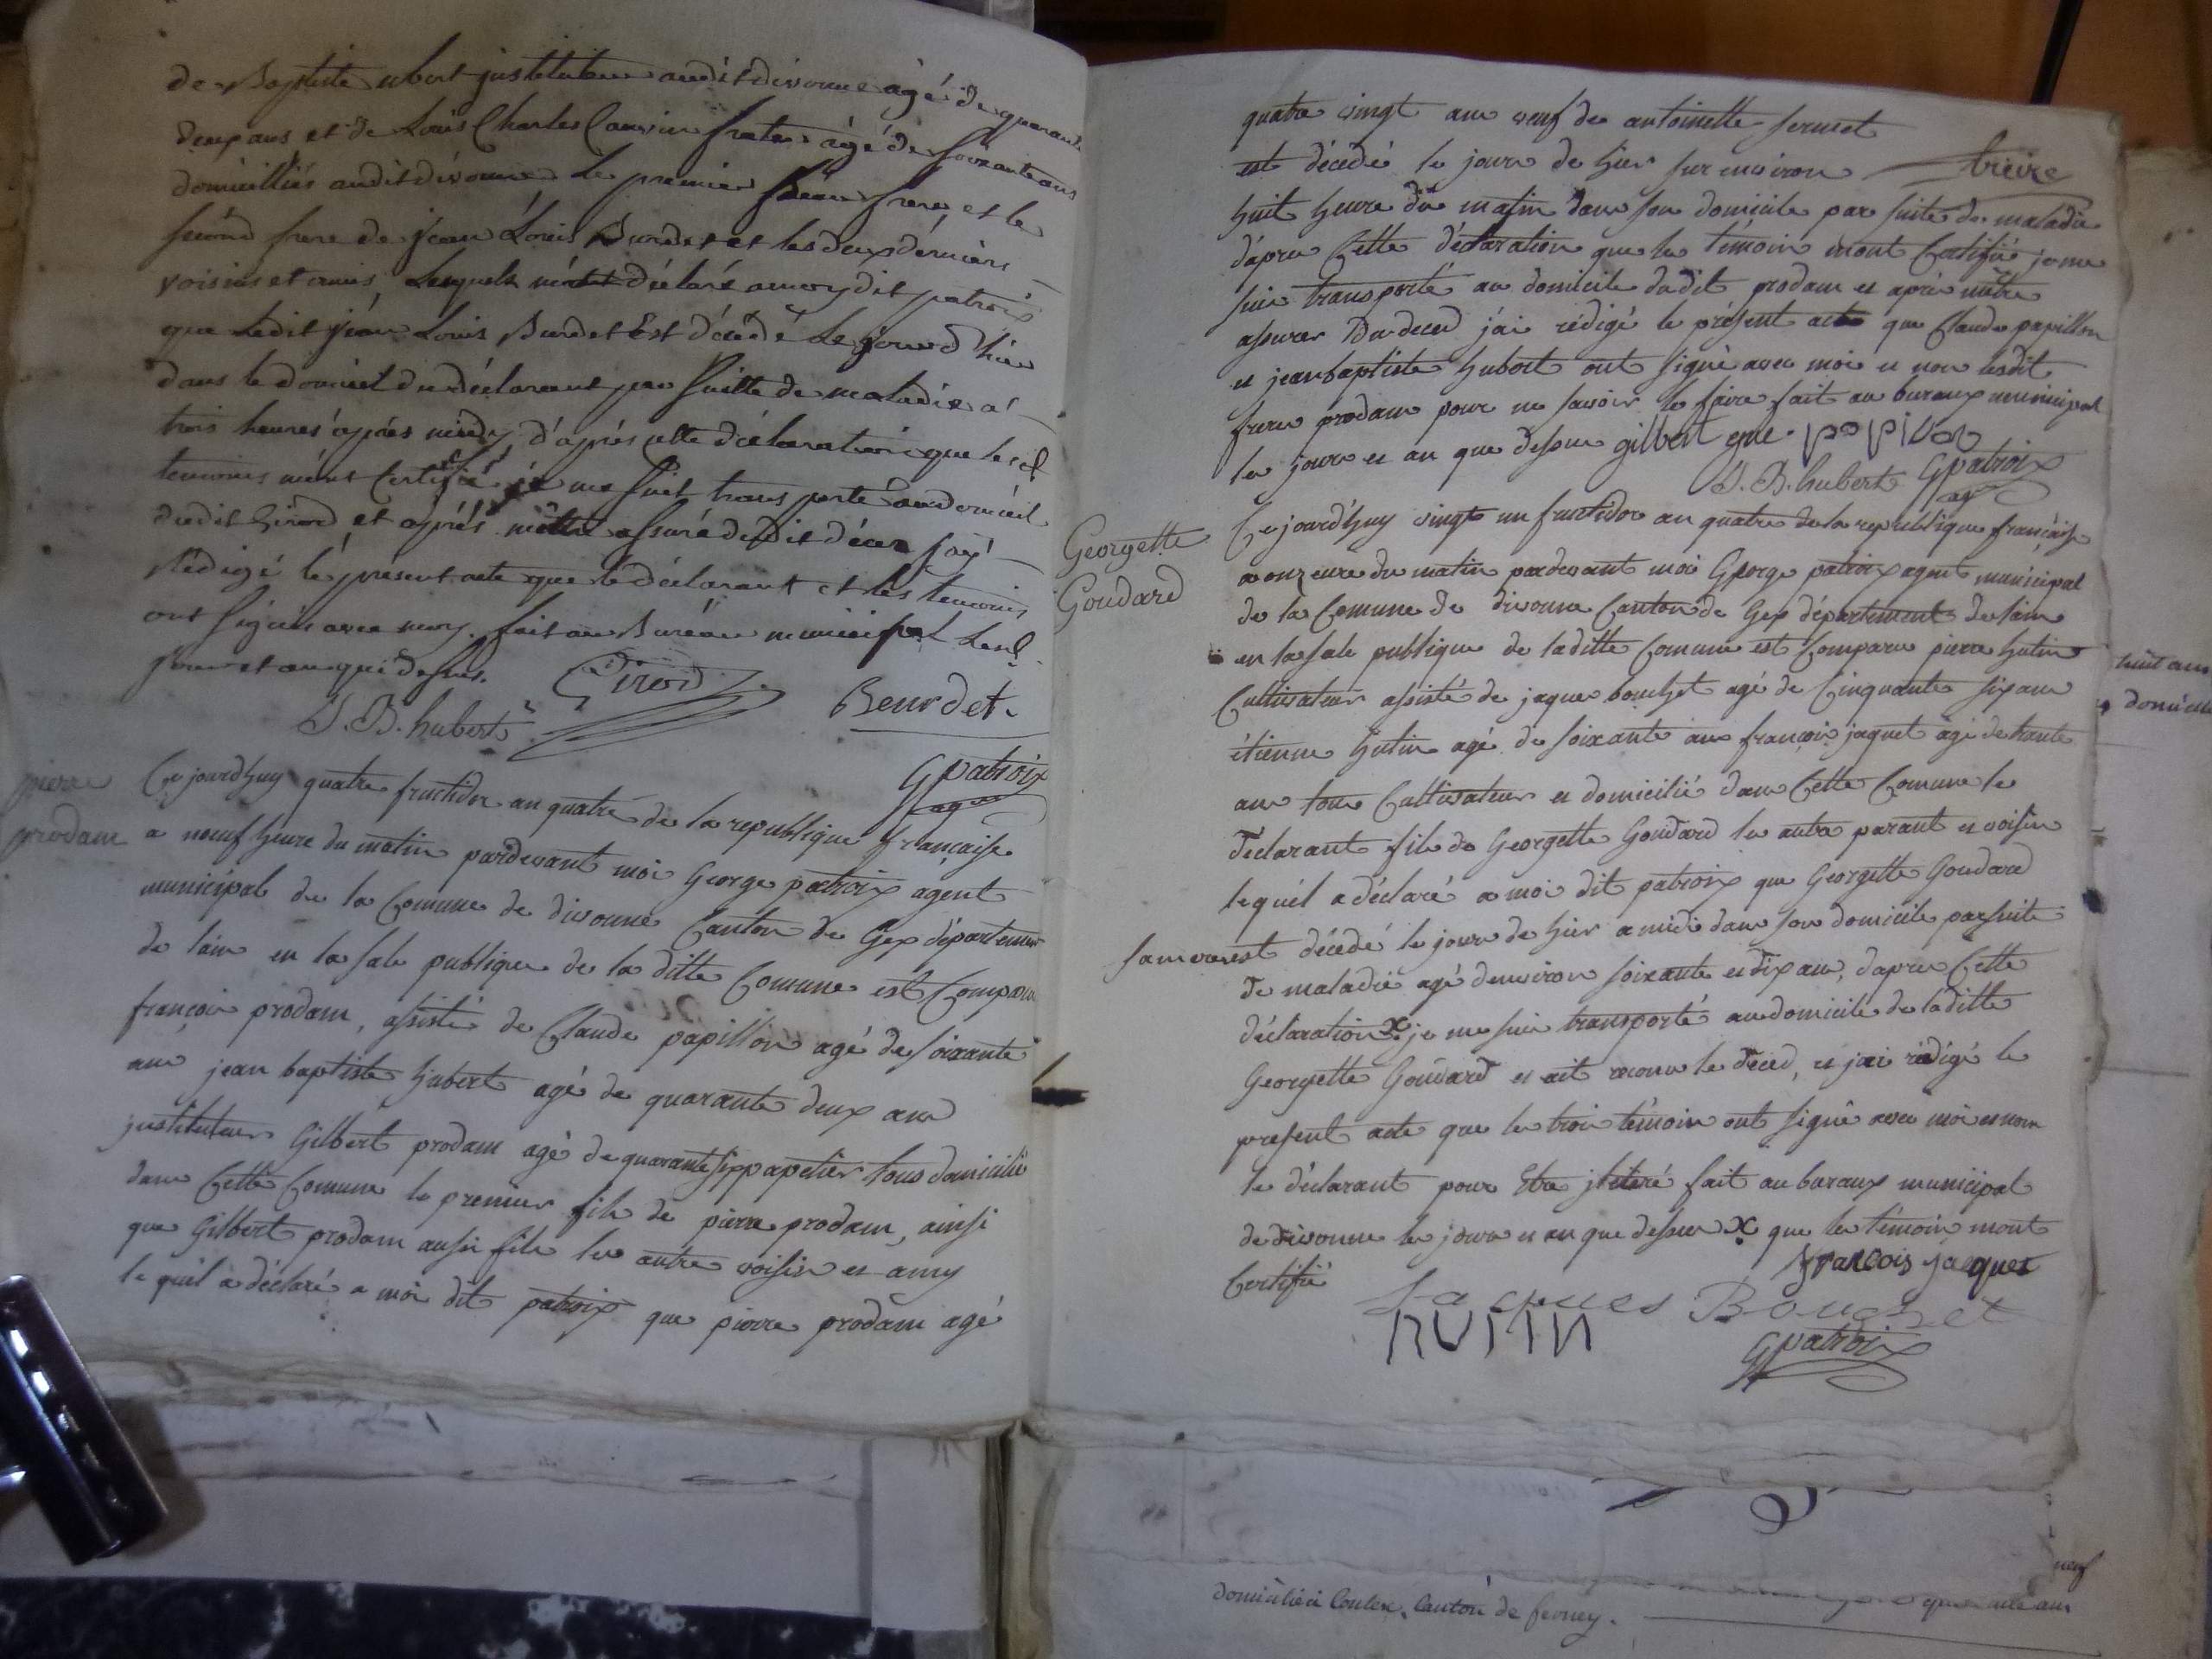 de Baptiste ubert justituteur audit divonne agé de quarante
deux ans et de Louis Charles frater agé de soixante ans
domicilliés audit divonne le premier Beau frere et le
second frere de jean Louis Burdet et les deux derniers
voisins et amis, Lesquels m'ont déclaré a moy dit patroix
que Ledit jean Louis Burdet Est décédé Le jour d'hier
dans le domicil du déclarant par suitte de maladie a
trois heures après midy d'après cette déclaration que les
temoins m'ont Certifié je me suis transporté au domicil
dudit Girod et après m'être assuré dudit décès j'ay
rédigé le présent acte que le déclarant et les temoins
ont signés avec moy. fait au Bureau municipal Les
jour et an que dessus.
Girod
J. B. hubert
Beurdet
Gpatroix
agt
pierre
prodam
Ce jourd'huy quatre fructidor an quatre de la republique française
a neuf heure du matin pardevant moi George patroix agent
municipal de la Comune de divonne Canton de Gex département
de lain en la sale publique de la ditte Comune est Comparu
françois prodam, assisté de Claude papillon agé de soixante
ans jean baptiste hubert agé de quarante deux ans
justituteur Gilbert prodam agé de quarante six papetier tous domicilié
dans Cette Comune le premier fils de pierre prodam, ainsi
que Gilbert prodam aussi fils les autre voisin et amy
le quel a déclaré a moi dit patroix que pierre prodam agé
quatre vingt ans veuf de antoinette fermet
est décedé le jour de hier sur environ
huit heure du matin dans son domicile par suite de maladie
d'apres Cette déclaration que les témoins mont Certifié je me
suis transporté au domicile dudit prodam et après mêtre
assurer du deced j'ai rédigé le présent acte que Claude papillon
et jean baptiste hubert ont signé avec moi et non lesdit
freres prodam pour ne savoir le faire fait au bureaux municipal
les jours et an que dessus gilbert papilon
J. B. hubert Gpatroix
agt
Georgette
Goudard
Ce jourd'huy vingt un fructidor an quatre de la republique française
a onze eure du matin pardevant moi George patroix agent municipal
de la Comune de divonne Canton de Gex département de lain
en la sale publique de laditte Comune est Comparu pierre hutin
Cultivateur assisté de jaques bouchet agé de Cinquante six ans
étienne hutin agé de soixante ans françois jaquet agé de trante
ans tous Cultivateur et domicilié dans Cette Comune le
déclarant fils de Georgette Goudard les autre parant et voisin
lequél a déclaré a moi dit patroix que Georgette Goudard
sa mere est décedé le jour de hier a midi dans son domicile par suite
de maladie agé denviron soixante et dix ans, dapres Cette
déclaration x je me suis transporté au domicile de laditte
Georgette Goudard et ait reconu le deced, et jai rédigé le
present acte que les trois témoin ont signé avec moi et non
le déclarant pour Etre jletéré fait au buraux municipal
de divonne les jours et an que dessus x que les témoin mont
Certifié
françois jaques
Jacques Bouchet
hutin
Gpatroix
huit ans
domicile
neuf
domicilié a Conlex. Canton de ferney.